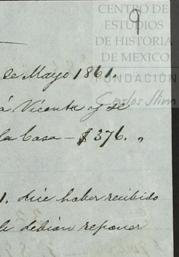 9
CENTRO DE
ESTUDIOS
DE HISTORIA
DE MEXICO
de Mayo 1861.
FUNDACIÓN
á Vicenta y de
Carlos Slim
la Casa — $376. „
1. dice haber recibido
le debian reponer